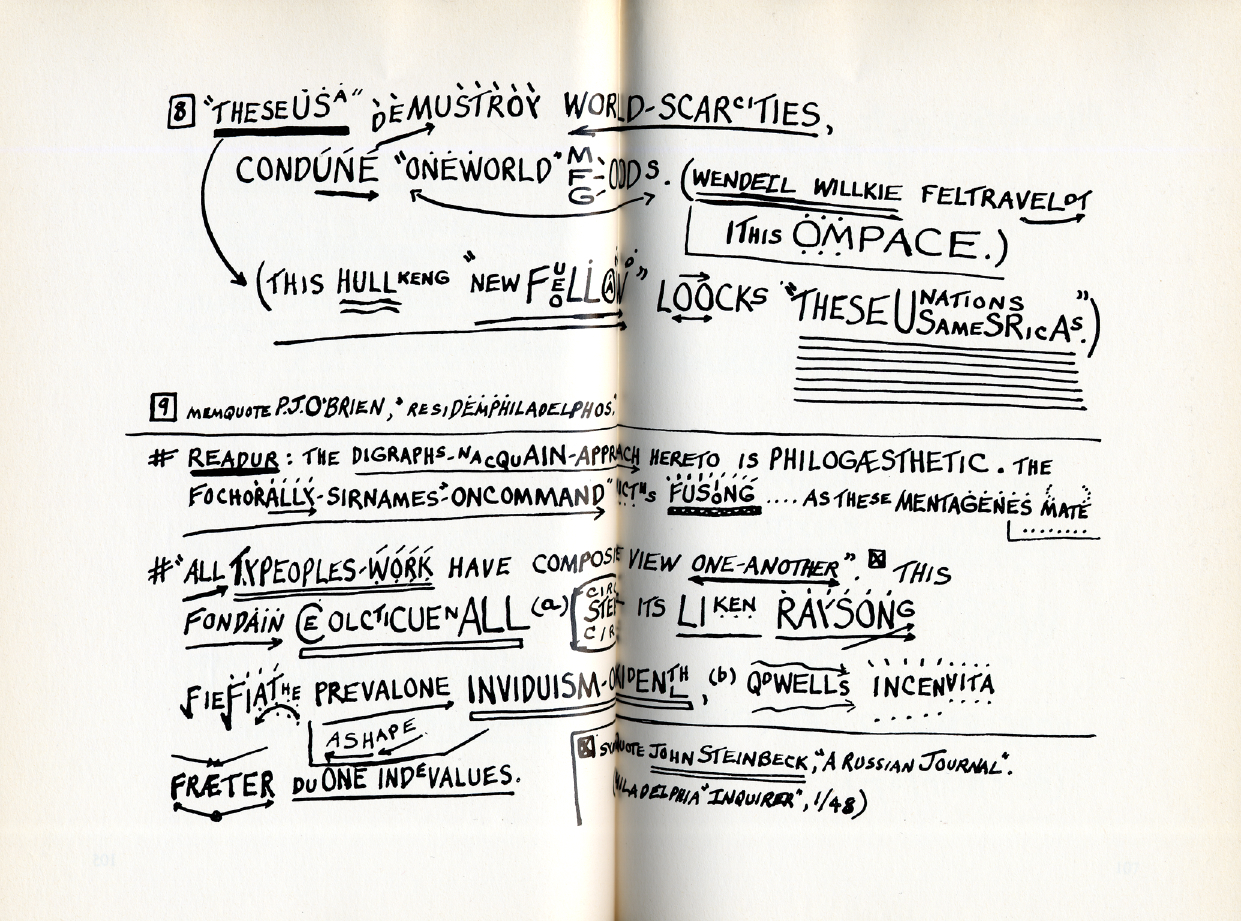 8 "THESEUSA" DEMUSTROY WORLD-SCARCITIES,
CONDUNE "ONEWORLD" MFG-ODDS. (WENDELL WILLKIE FELTRAVELOT
ITHIS OMPACE.)
(THIS HULLKENG "NEW LOOCKS "THESE UNATIONS
USAMESRICAS.")
9 MEMQUOTE P.J.O'BRIEN, "RESIDEMPHILADELPHOS."
# READUR: THE DIGRAPHS-NACQUAIN-APPRACH HERETO IS PHILOGÆSTHETIC. THE
FOCHORALLY-SIRNAMES-ONCOMMAND" FUSING .... AS THESE MENTAGENES MATE
# "ALL TYPEOPLES-WORK HAVE VIEW ONE-ANOTHER". THIS
FONDAIN (a) ITS LIKEN RAYSONG
FIEFIATHE PREVALONE , (b) QDWELLS INCENVITA
ASHAPE
FRÆTER DUONE INDEVALUES.
JOHN STEINBECK, "A RUSSIAN JOURNAL".
"INQUIRER", 1/48)